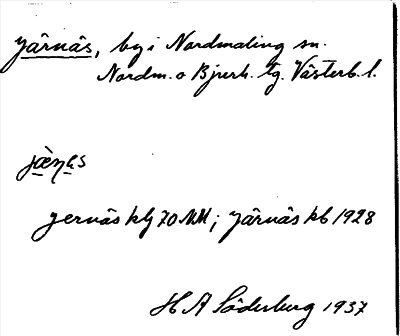 Järnäs, by i Nordmaling sn.
Nordm. o Bjurh. tg. Västerb. l.
jernäs klg 70 NM; Järnäs kb 1928
H A Söderberg 1937